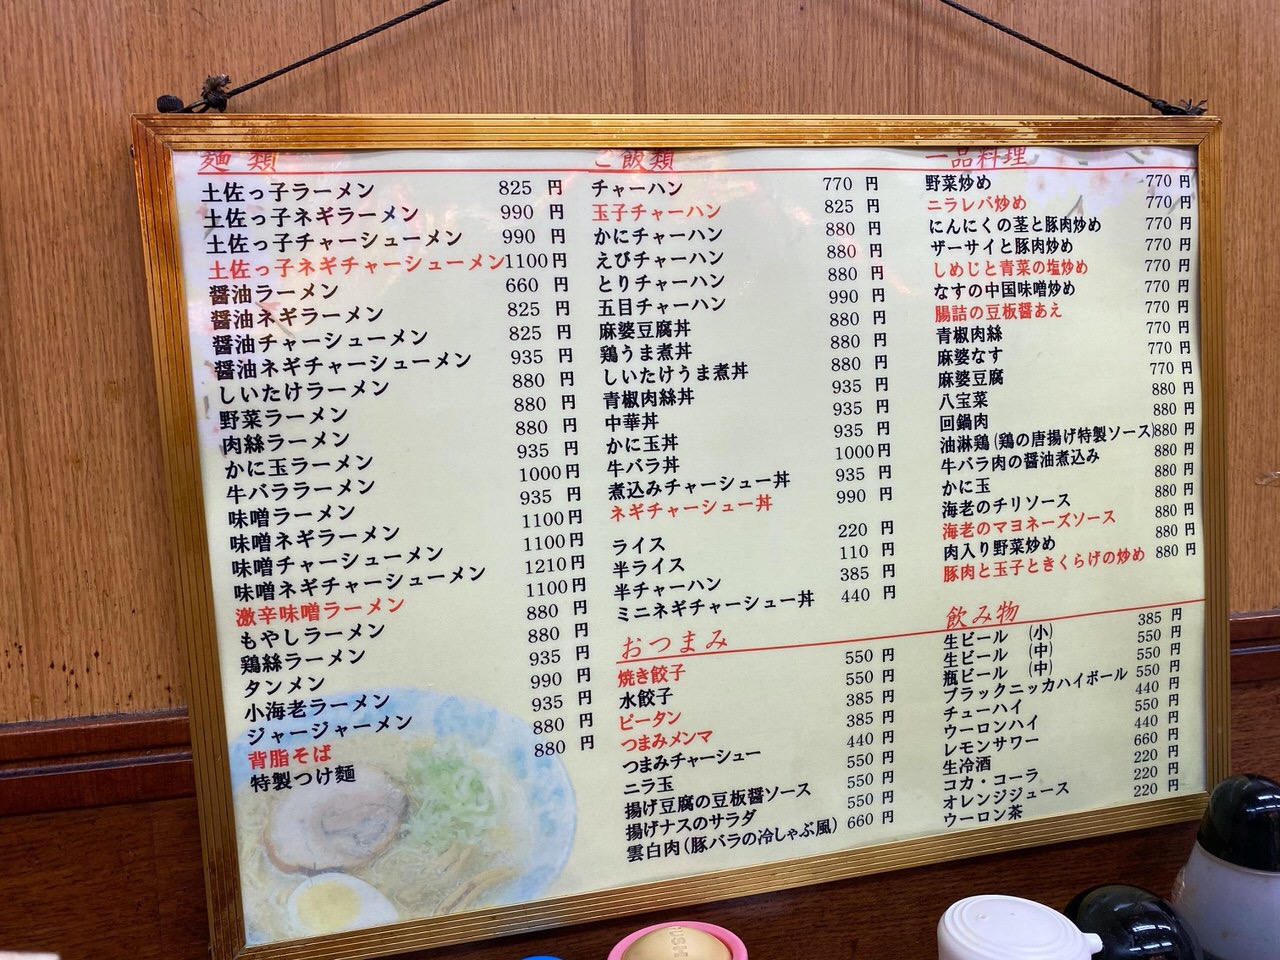 麺類
土佐っ子ラーメン 825円
土佐っ子ネギラーメン 990円
土佐っ子チャーシューメン 990円
土佐っ子ネギチャーシューメン 1100円
醤油ラーメン 660円
醤油ネギラーメン 825円
醤油チャーシューメン 825円
醤油ネギチャーシューメン 935円
しいたけラーメン 880円
野菜ラーメン 880円
肉絲ラーメン 880円
かに玉ラーメン 935円
牛バララーメン 1000円
味噌ラーメン 935円
味噌ネギラーメン 1100円
味噌チャーシューメン 1100円
味噌ネギチャーシューメン 1210円
激辛味噌ラーメン 1100円
もやしラーメン 880円
鶏絲ラーメン 880円
タンメン 935円
小海老ラーメン 990円
ジャージャーメン 935円
背脂そば 880円
特製つけ麺 880円
ご飯類
チャーハン 770円
玉子チャーハン 825円
かにチャーハン 880円
えびチャーハン 880円
とりチャーハン 880円
五目チャーハン 990円
麻婆豆腐丼 880円
鶏うま煮丼 880円
しいたけうま煮丼 880円
青椒肉絲丼 935円
中華丼 935円
かに玉丼 935円
牛バラ丼 1000円
煮込みチャーシュー丼 935円
ネギチャーシュー丼 990円
ライス 220円
半ライス 110円
半チャーハン 385円
ミニネギチャーシュー丼 440円
おつまみ
焼き餃子 550円
水餃子 550円
ピータン 385円
つまみメンマ 385円
つまみチャーシュー 440円
ニラ玉 550円
揚げ豆腐の豆板醤ソース 550円
揚げナスのサラダ 550円
雲白肉(豚バラの冷しゃぶ風) 660円
一品料理
野菜炒め 770円
ニラレバ炒め 770円
にんにくの茎と豚肉炒め 770円
ザーサイと豚肉炒め 770円
しめじと青菜の塩炒め 770円
なすの中国味噌炒め 770円
腸詰の豆板醤あえ 770円
青椒肉絲 770円
麻婆なす 770円
麻婆豆腐 770円
八宝菜 880円
回鍋肉 880円
油淋鶏(鶏の唐揚げ特製ソース) 880円
牛バラ肉の醤油煮込み 880円
かに玉 880円
海老のチリソース 880円
海老のマヨネーズソース 880円
肉入り野菜炒め 880円
豚肉と玉子ときくらげの炒め 880円
飲み物
生ビール (小) 385円
生ビール (中) 550円
瓶ビール (中) 550円
ブラックニッカハイボール 550円
チューハイ 440円
ウーロンハイ 550円
レモンサワー 440円
生冷酒 660円
コカ・コーラ 220円
オレンジジュース 220円
ウーロン茶 220円